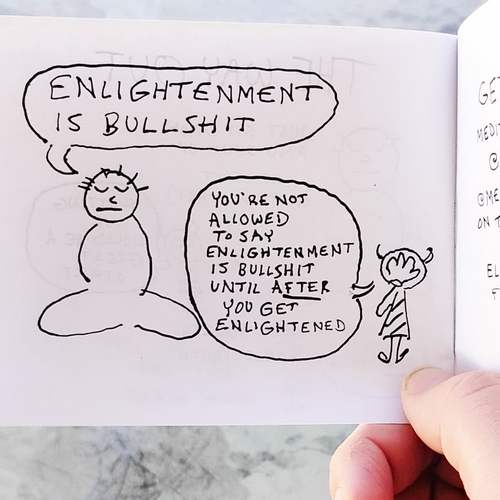 ENLIGHTENMENT
IS BULLSHIT
YOU'RE NOT
ALLOWED
TO SAY
ENLIGHTENMENT
IS BULLSHIT
UNTIL AFTER
YOU GET
ENLIGHTENED
GE
MEDI
@
@ME
ON T
EL
F